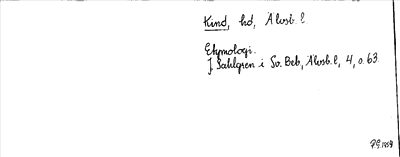 Kind, hd, Älvsb. l.
Etymologi.
J. Sahlgren i Sv. Beb., Älvsb. l., 4, s. 63.